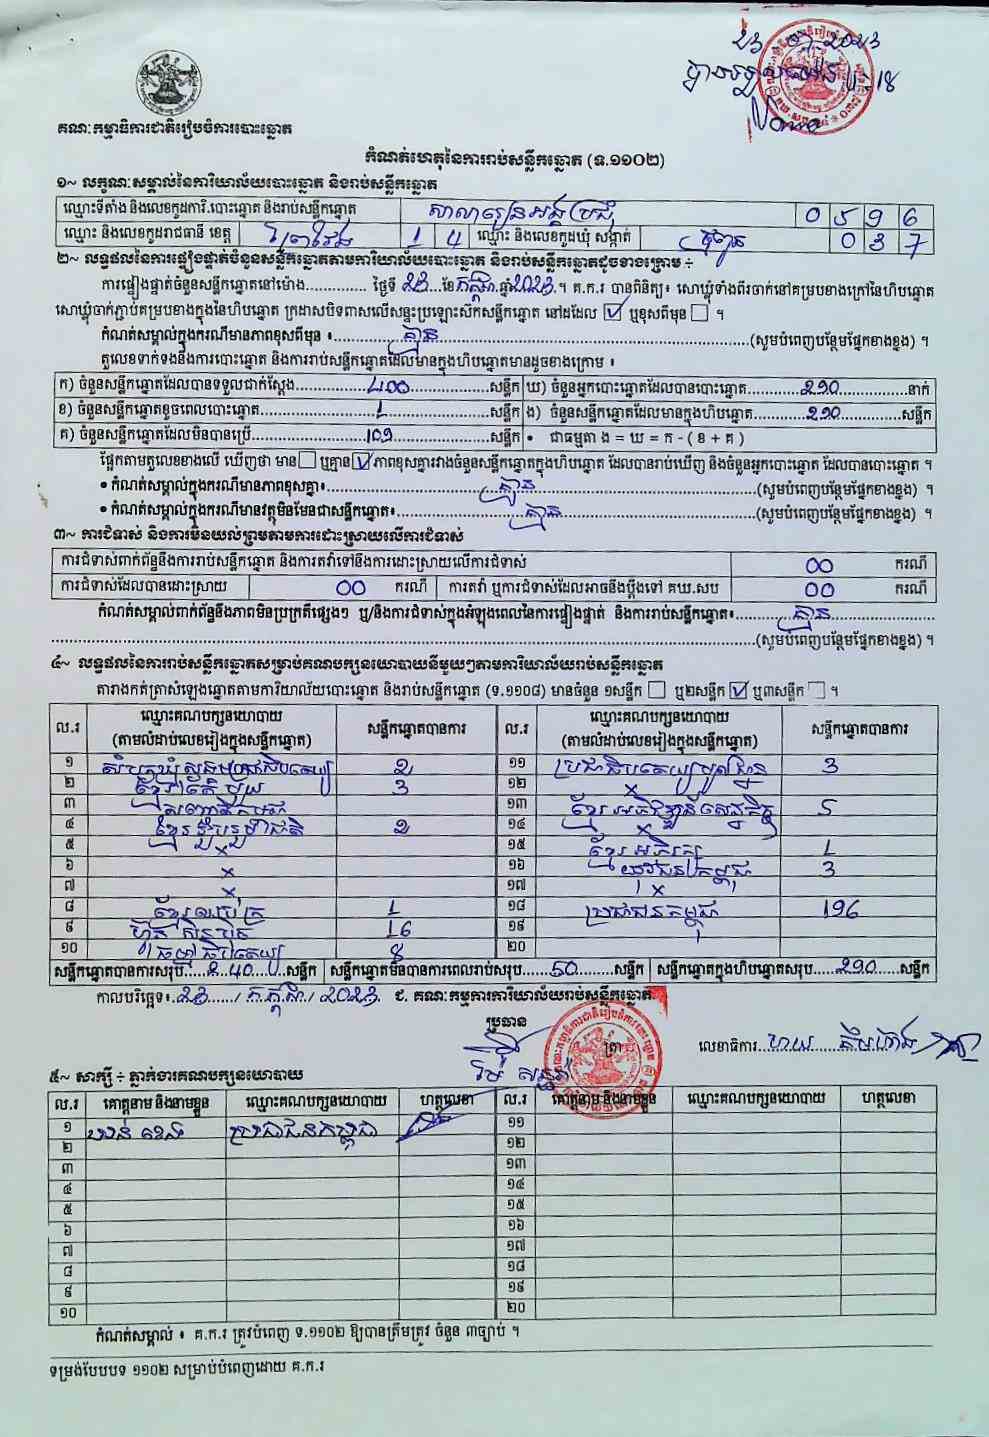 23 2023
18
គណៈកម្មាធិការជាតិរៀបចំការបោះឆ្នោត
កំណត់ហេតុនៃការរាប់សន្លឹកឆ្នោត (ទ.១១០២)
១~ លក្ខណៈសម្គាល់នៃការិយាល័យបោះឆ្នោត និងរាប់សន្លឹកឆ្នោត
ឈ្មោះទីតាំង និងលេខកូដការិ.បោះឆ្នោត និងរាប់សន្លឹកឆ្នោត សាលារៀនអង្គប្រជុំ 0 5 9 6
ឈ្មោះ និងលេខកូដរាជធានី ខេត្ត ព្រៃវែង 1 4 ឈ្មោះ និងលេខកូដឃុំ សង្កាត់ 0 3 7
២~ លទ្ធផលនៃការផ្ទៀងផ្ទាត់ចំនួនសន្លឹកឆ្នោតតាមការិយាល័យបោះឆ្នោត និងរាប់សន្លឹកឆ្នោតដូចខាងក្រោម ÷
ការផ្ទៀងផ្ទាត់ចំនួនសន្លឹកឆ្នោតនៅម៉ោង.............. ថ្ងៃទី 23...ខែកក្កដា.ឆ្នាំ2023.។ គ.ក.រ បានពិនិត្យ៖ សោឃ្លុំទាំងពីរចាក់នៅគម្របខាងក្រៅនៃហិបឆ្នោត
សោឃ្លុំចាក់ភ្ជាប់គម្របខាងក្នុងនៃហិបឆ្នោត ក្រដាសបិទពាសលើសន្ទះប្រឡោះស៊កសន្លឹកឆ្នោត នៅដដែល ☑ ឬខុសពីមុន ☐ ។
កំណត់សម្គាល់ក្នុងករណីមានភាពខុសពីមុន ៖..........គ្មាន..........(សូមបំពេញបន្ថែមផ្នែកខាងខ្នង) ។
តួលេខទាក់ទងនឹងការបោះឆ្នោត និងការរាប់សន្លឹកឆ្នោតដែលមានក្នុងហិបឆ្នោតមានដូចខាងក្រោម ៖
ក) ចំនួនសន្លឹកឆ្នោតដែលបានទទួលជាក់ស្តែង..........400..........សន្លឹក ឃ) ចំនួនអ្នកបោះឆ្នោតដែលបានបោះឆ្នោត..........290..........នាក់
ខ) ចំនួនសន្លឹកឆ្នោតខូចពេលបោះឆ្នោត..........1..........សន្លឹក ង) ចំនួនសន្លឹកឆ្នោតដែលមានក្នុងហិបឆ្នោត..........290..........សន្លឹក
គ) ចំនួនសន្លឹកឆ្នោតដែលមិនបានប្រើ..........109..........សន្លឹក • ជាធម្មតា ង = ឃ = ក - ( ខ + គ )
ផ្អែកតាមតួលេខខាងលើ ឃើញថា មាន ☐ ឬគ្មាន ☑ ភាពខុសគ្នារវាងចំនួនសន្លឹកឆ្នោតក្នុងហិបឆ្នោត ដែលបានរាប់ឃើញ និងចំនួនអ្នកបោះឆ្នោត ដែលបានបោះឆ្នោត ។
• កំណត់សម្គាល់ក្នុងករណីមានភាពខុសគ្នា៖..........គ្មាន..........(សូមបំពេញបន្ថែមផ្នែកខាងខ្នង) ។
• កំណត់សម្គាល់ក្នុងករណីមានវត្ថុមិនមែនជាសន្លឹកឆ្នោត៖..........គ្មាន..........(សូមបំពេញបន្ថែមផ្នែកខាងខ្នង) ។
៣~ ការជំទាស់ និងការមិនយល់ព្រមតាមការដោះស្រាយលើការជំទាស់
ការជំទាស់ពាក់ព័ន្ធនឹងការរាប់សន្លឹកឆ្នោត និងការតវ៉ាទៅនឹងការដោះស្រាយលើការជំទាស់ 00 ករណី
ការជំទាស់ដែលបានដោះស្រាយ 00 ករណី ការតវ៉ា ឬការជំទាស់ដែលអាចនឹងប្តឹងទៅ គឃ.សប 00 ករណី
កំណត់សម្គាល់ពាក់ព័ន្ធនឹងភាពមិនប្រក្រតីផ្សេងៗ ឬ/និងការជំទាស់ក្នុងអំឡុងពេលនៃការផ្ទៀងផ្ទាត់ និងការរាប់សន្លឹកឆ្នោត៖..........គ្មាន..........
..........(សូមបំពេញបន្ថែមផ្នែកខាងខ្នង) ។
៤~ លទ្ធផលនៃការរាប់សន្លឹកឆ្នោតសម្រាប់គណបក្សនយោបាយនីមួយៗតាមការិយាល័យរាប់សន្លឹកឆ្នោត
តារាងកត់ត្រាសំឡេងឆ្នោតតាមការិយាល័យបោះឆ្នោត និងរាប់សន្លឹកឆ្នោត (ទ.១១០៨) មានចំនួន ១សន្លឹក ☐ ឬ២សន្លឹក ☑ ឬ៣សន្លឹក ☐ ។
ល.រ ឈ្មោះគណបក្សនយោបាយ (តាមលំដាប់លេខរៀងក្នុងសន្លឹកឆ្នោត) សន្លឹកឆ្នោតបានការ ល.រ ឈ្មោះគណបក្សនយោបាយ (តាមលំដាប់លេខរៀងក្នុងសន្លឹកឆ្នោត) សន្លឹកឆ្នោតបានការ
១ សំបុកឃ្មុំសង្គមប្រជាធិបតេយ្យ 2 ១១ ប្រជាធិបតេយ្យមូលដ្ឋាន 3
២ ខ្មែររួមរួម 3 ១២ ×
៣ សញ្ជាតិកម្ពុជា ១៣ ខ្មែរអភិវឌ្ឍន៍សេដ្ឋកិច្ច 5
៤ ខ្មែររួបរួមជាតិ 2 ១៤ ×
៥ × ១៥ ខ្មែរអភិរក្ស 1
៦ × ១៦ យុវជនកម្ពុជា 3
៧ × ១៧ ×
៨ 1 ១៨ ប្រជាជនកម្ពុជា 196
៩ ហ្វ៊ុនស៊ិនប៉ិច 16 ១៩
១០ ធម្មាធិបតេយ្យ 8 ២០
សន្លឹកឆ្នោតបានការសរុប.....240.....សន្លឹក សន្លឹកឆ្នោតមិនបានការពេលរាប់សរុប......50......សន្លឹក សន្លឹកឆ្នោតក្នុងហិបឆ្នោតសរុប.....290.....សន្លឹក
កាលបរិច្ឆេទ៖.23...../.កក្កដា./.2023. ជ. គណៈកម្មការការិយាល័យរាប់សន្លឹកឆ្នោត
ប្រធាន
ត្រា លេខាធិការ
៥~ សាក្សី ÷ ភ្នាក់ងារគណបក្សនយោបាយ
ល.រ គោត្តនាម និងនាមខ្លួន ឈ្មោះគណបក្សនយោបាយ ហត្ថលេខា ល.រ គោត្តនាម និងនាមខ្លួន ឈ្មោះគណបក្សនយោបាយ ហត្ថលេខា
១ ប្រជាជនកម្ពុជា ១១
២ ១២
៣ ១៣
៤ ១៤
៥ ១៥
៦ ១៦
៧ ១៧
៨ ១៨
៩ ១៩
១០ ២០
កំណត់សម្គាល់ ៖ គ.ក.រ ត្រូវបំពេញ ទ.១១០២ ឱ្យបានត្រឹមត្រូវ ចំនួន ៣ច្បាប់ ។
ទម្រង់បែបបទ ១១០២ សម្រាប់បំពេញដោយ គ.ក.រ